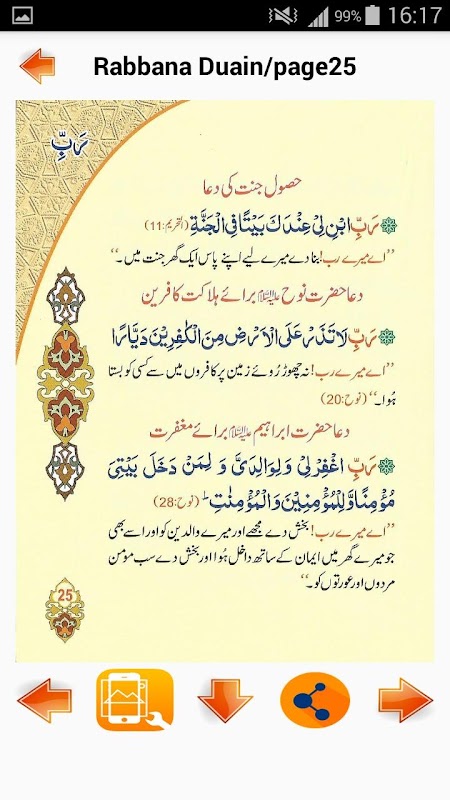 99% 16:17
Rabbana Duain/page25
رَبِّ
حصول جنت کی دعا
رَبِّ ابْنِ لِیْ عِنْدَكَ بَیْتًا فِی الْجَنَّةِ (التحریم:11)
’’اے میرے رب! بنا دے میرے لیے اپنے پاس ایک گھر جنت میں۔‘‘
دعا حضرت نوح علیہ السلام برائے ہلاکت کافرین
رَبِّ لَا تَذَرْ عَلَی الْاَرْضِ مِنَ الْكٰفِرِیْنَ دَیَّارًا
’’اے میرے رب! نہ چھوڑ رُوئے زمین پر کافروں میں سے کسی کو بستا
ہُوا۔‘‘ (نوح:20)
دعا حضرت ابراہیم علیہ السلام برائے مغفرت
رَبِّ اغْفِرْ لِیْ وَلِوَالِدَیَّ وَ لِمَنْ دَخَلَ بَیْتِیَ
مُؤْمِنًا وَّلِلْمُؤْمِنِیْنَ وَالْمُؤْمِنٰتِ ؕ (نوح:28)
’’اے میرے رب! بخش دے مجھے اور میرے والدین کو اور اسے بھی
جو میرے گھر میں ایمان کے ساتھ داخل ہُوا اور بخش دے سب مؤمن
مردوں اور عورتوں کو۔‘‘
25